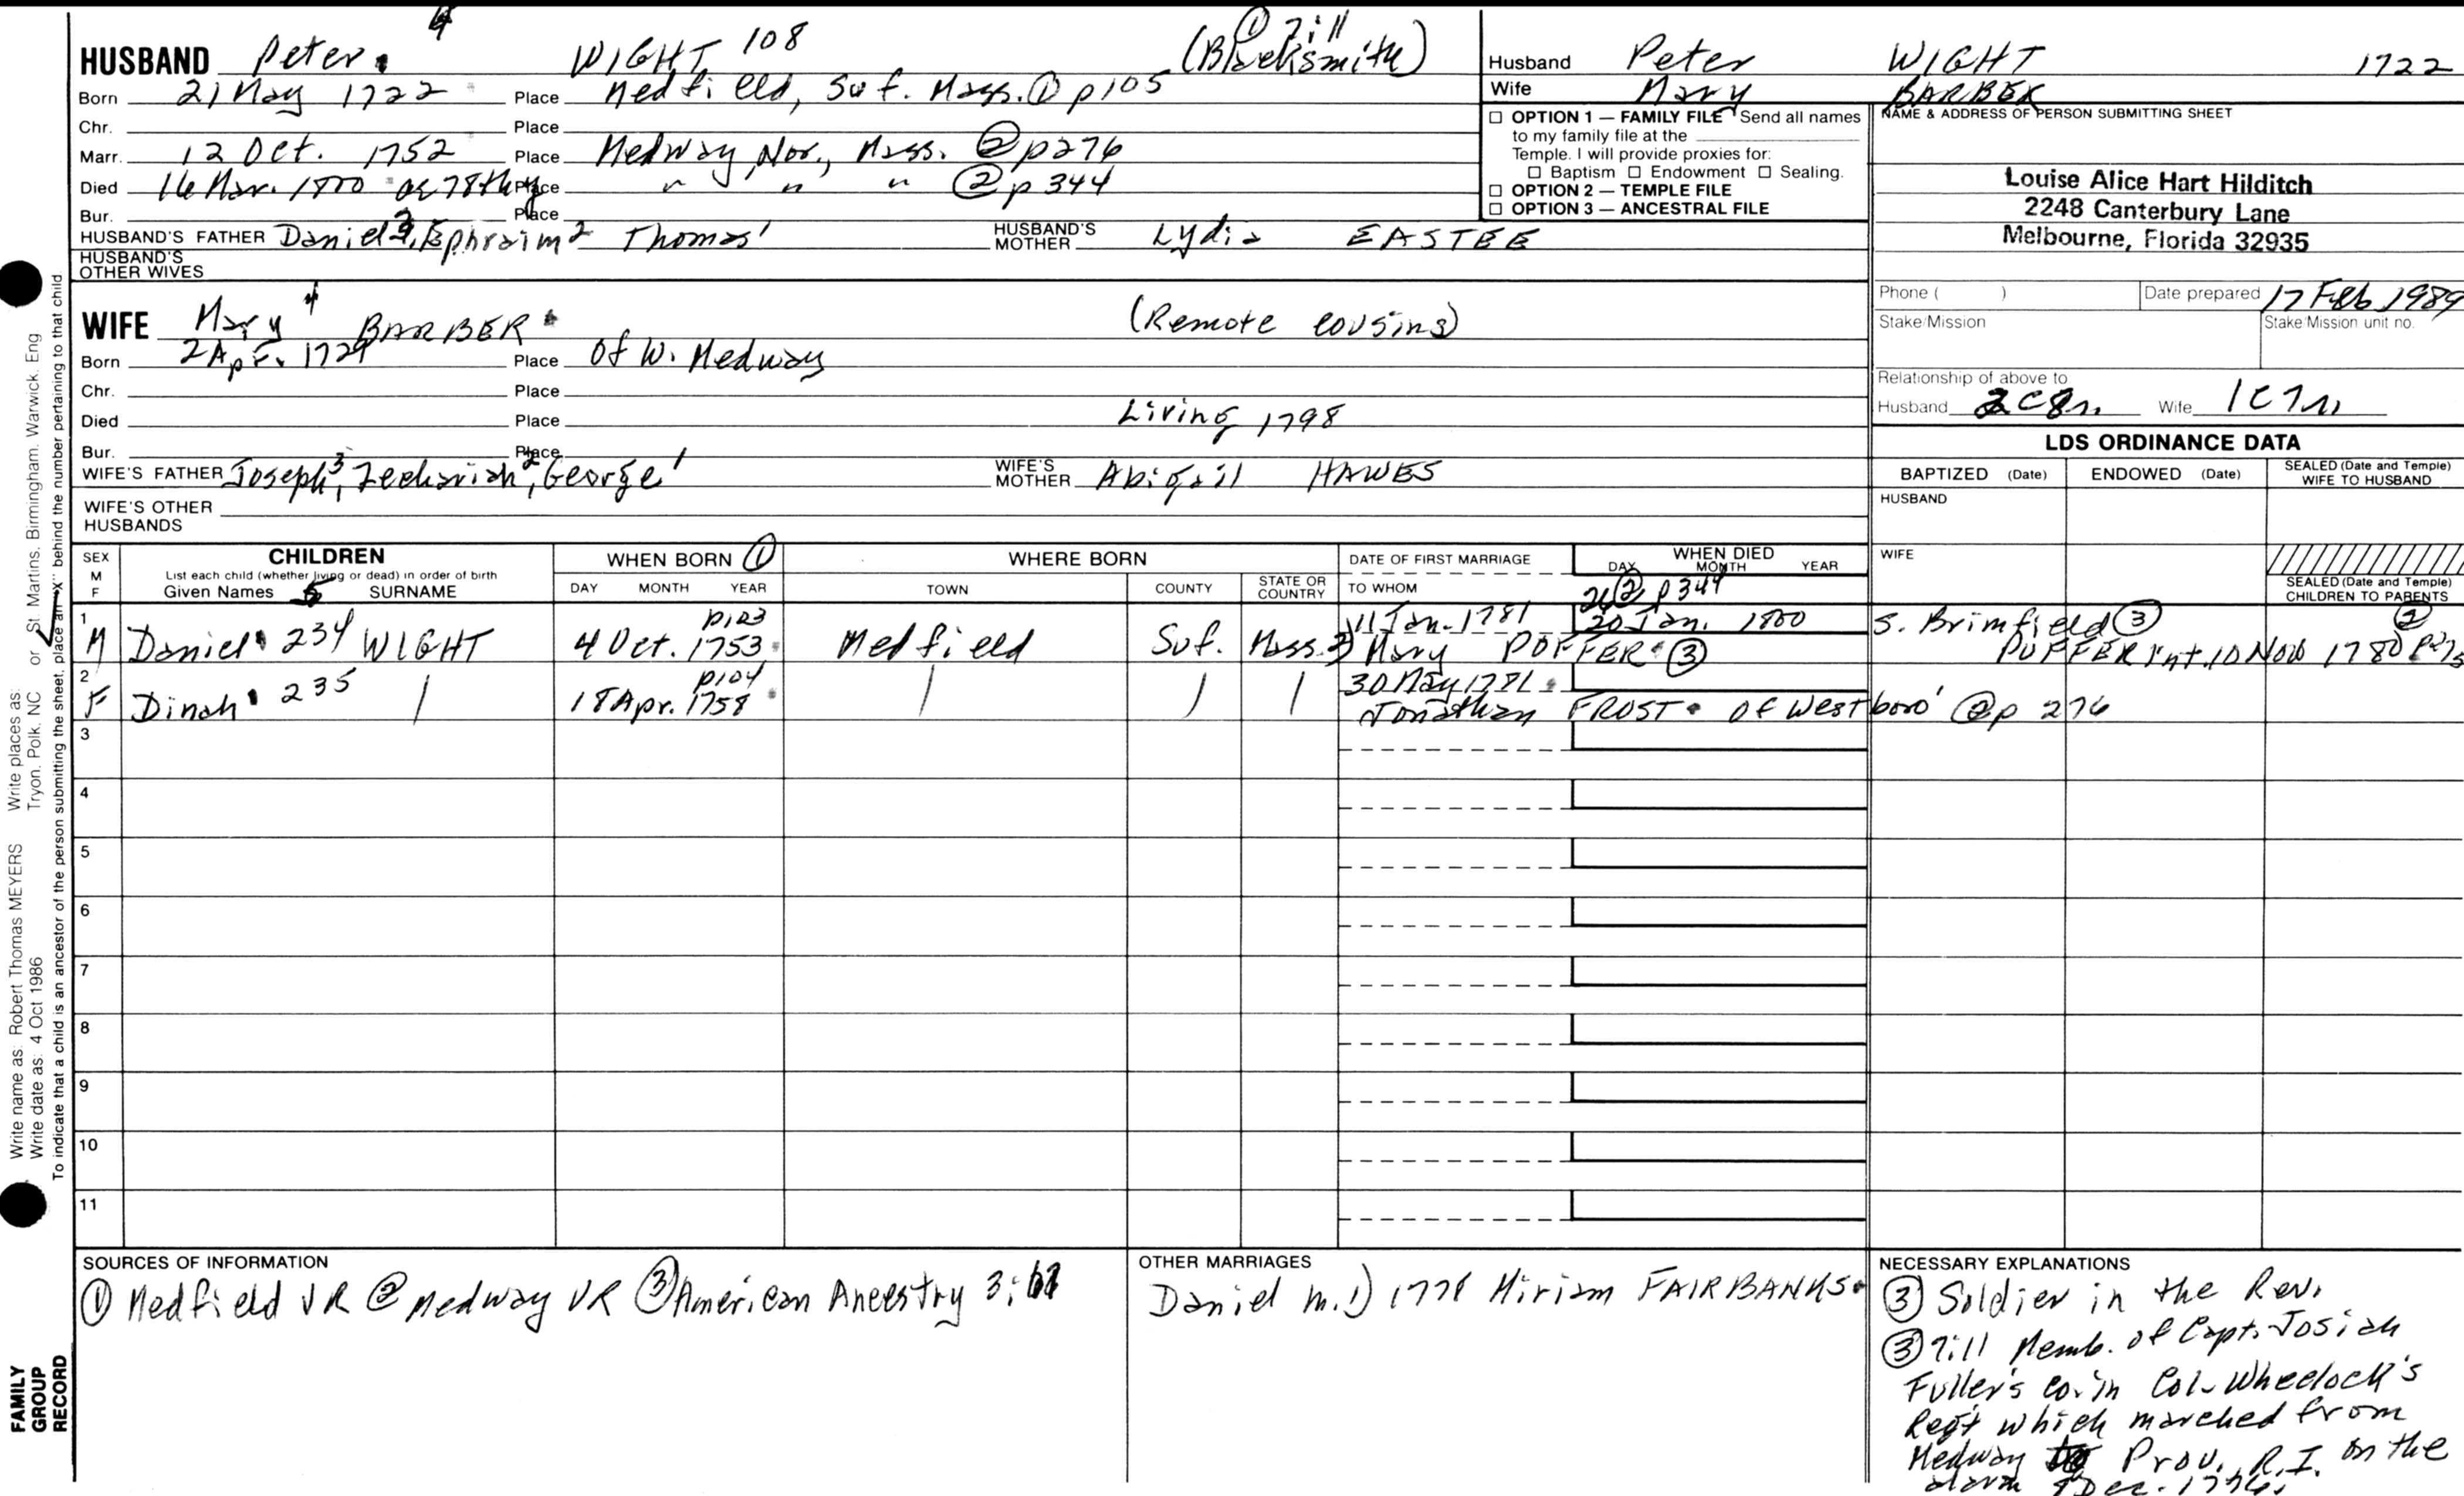 4
HUSBAND Peter WIGHT 108 (Blacksmith) ① 7:11
Born 21 May 1722 Place Medfield, Suf. Mass. ① p105
Chr. Place
Marr. 12 Oct. 1752 Place Medway, Nor., Mass. ② p276
Died 16 Mar. 1800 ae 78th y Place " " " ② p344
Bur. Place
HUSBAND'S FATHER Daniel³, Ephraim² Thomas¹ HUSBAND'S MOTHER Lydia EASTEE
HUSBAND'S OTHER WIVES
WIFE Mary⁴ BARBER (Remote cousins)
Born 2 Apr. 1729 Place Of W. Medway
Chr. Place
Died Place Living 1798
Bur. Place
WIFE'S FATHER Joseph³, Zechariah², George¹ WIFE'S MOTHER Abigail HAWES
WIFE'S OTHER HUSBANDS
Husband Peter WIGHT 1722
Wife Mary BARBER
☐ OPTION 1 — FAMILY FILE Send all names
to my family file at the
Temple. I will provide proxies for:
☐ Baptism ☐ Endowment ☐ Sealing.
☐ OPTION 2 — TEMPLE FILE
☐ OPTION 3 — ANCESTRAL FILE
NAME & ADDRESS OF PERSON SUBMITTING SHEET
Louise Alice Hart Hilditch
2248 Canterbury Lane
Melbourne, Florida 32935
Phone ( ) Date prepared 17 Feb 1989
Stake/Mission Stake/Mission unit no.
Relationship of above to
Husband 2C8r. Wife 1C7r.
LDS ORDINANCE DATA
BAPTIZED (Date) ENDOWED (Date) SEALED (Date and Temple) WIFE TO HUSBAND
HUSBAND
WIFE
SEALED (Date and Temple) CHILDREN TO PARENTS
SEX M F
CHILDREN
List each child (whether living or dead) in order of birth
Given Names 5 SURNAME
WHEN BORN ①
DAY MONTH YEAR
WHERE BORN
TOWN COUNTY STATE OR COUNTRY
DATE OF FIRST MARRIAGE
TO WHOM
WHEN DIED
DAY MONTH YEAR
26 ② p344
1 M Daniel 234 WIGHT p123 4 Oct. 1753 Medfield Suf. Mass. 11 Jan. 1781 20 Jan. 1800 S. Brimfield ③ ②
2) Mary POFFER ③ PUFFER int. 10 Nov 1780 p275
2 F Dinah 235 p104 18 Apr. 1758 30 May 1781
Jonathan FROST of Westboro' ② p 276
3
4
5
6
7
8
9
10
11
SOURCES OF INFORMATION
① Medfield VR ② Medway VR ③ American Ancestry 3:
OTHER MARRIAGES
Daniel m. 1) 1778 Miriam FAIRBANKS
NECESSARY EXPLANATIONS
③ Soldier in the Rev.
③ 7:11 Memb. of Capt. Josiah
Fuller's co. in Col. Wheelock's
Regt which marched from
Medway to Prov. R.I. on the
alarm 8 Dec. 1776.
Write name as: Robert Thomas MEYERS Write places as: St. Martins, Birmingham, Warwick, Eng
Write date as: 4 Oct 1986 Tryon, Polk, NC or
To indicate that a child is an ancestor of the person submitting the sheet, place an "X" behind the number pertaining to that child
FAMILY
GROUP
RECORD